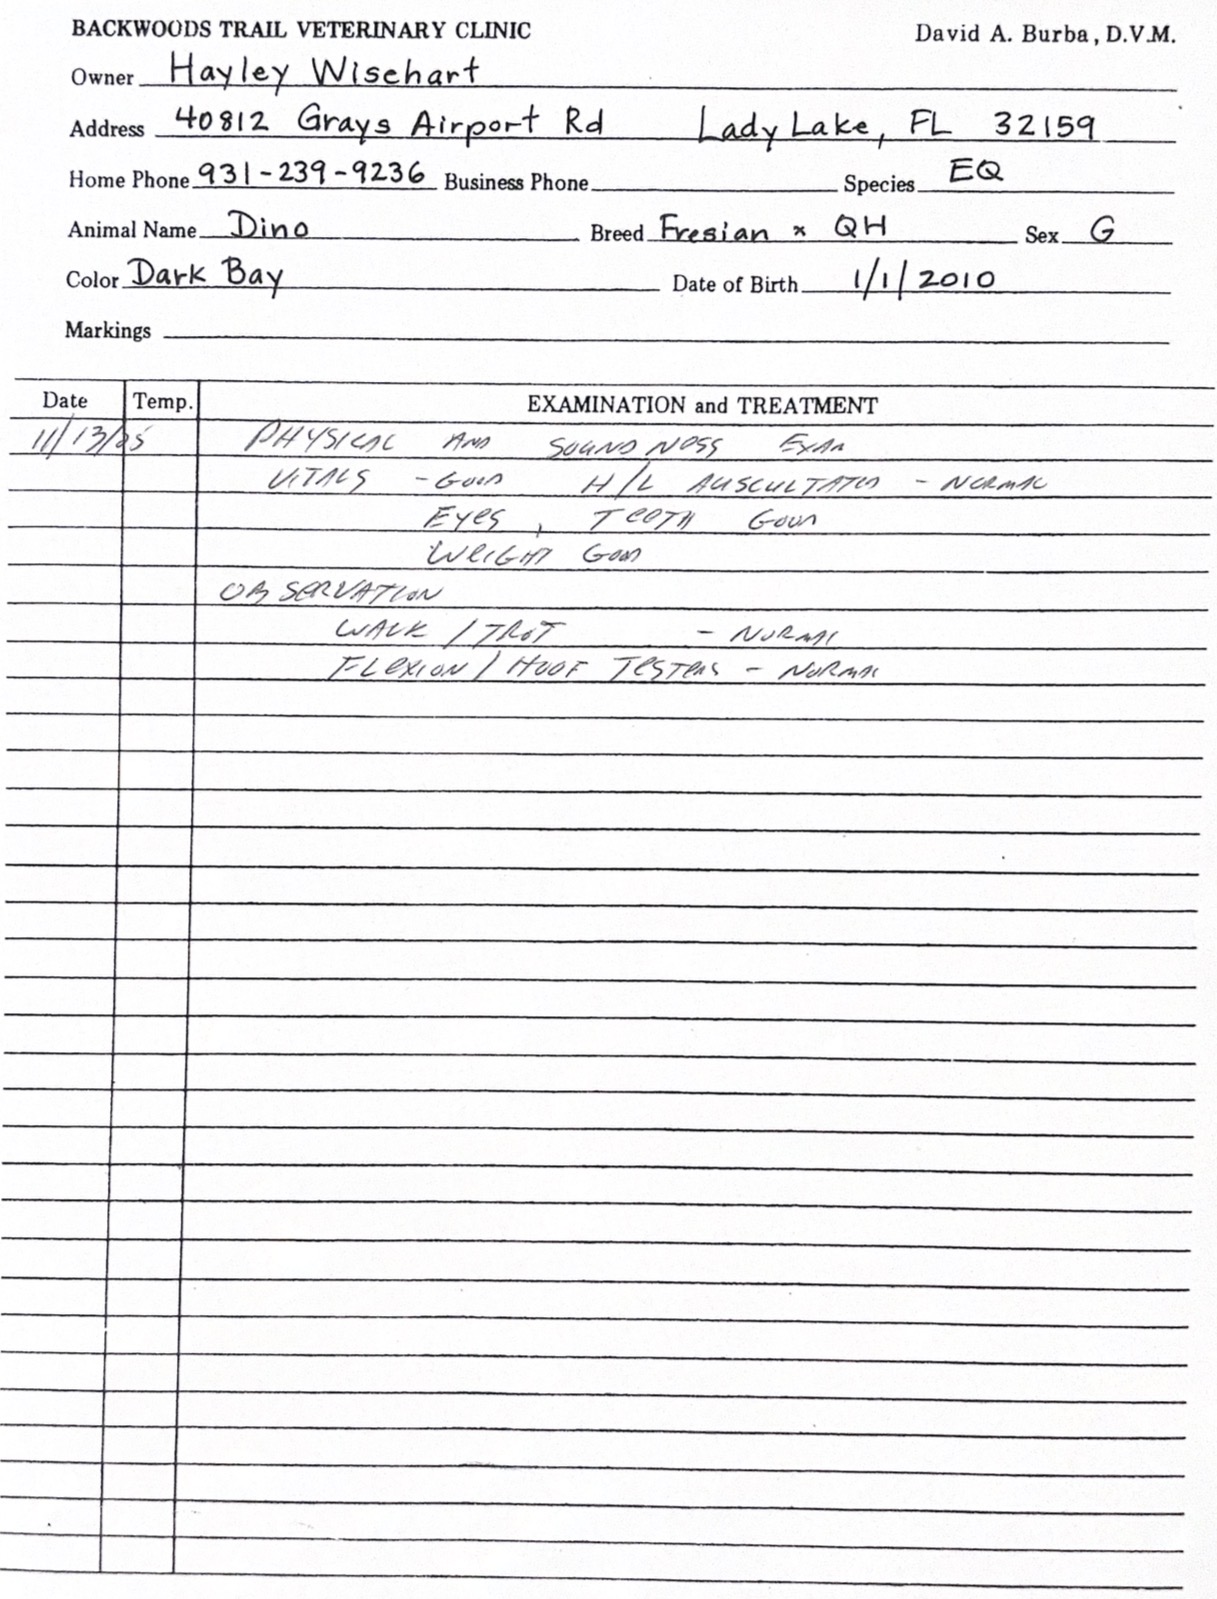 BACKWOODS TRAIL VETERINARY CLINIC David A. Burba, D.V.M.
Owner Hayley Wisehart
Address 40812 Grays Airport Rd Lady Lake, FL 32159
Home Phone 931-239-9236 Business Phone Species EQ
Animal Name Dino Breed Fresian x QH Sex G
Color Dark Bay Date of Birth 1/1/2010
Markings
Date Temp. EXAMINATION and TREATMENT
11/13/25 PHYSICAL AND SOUNDNESS EXAM
VITALS - GOOD H/L AUSCULTATED - NORMAL
EYES, TEETH GOOD
WEIGHT GOOD
OBSERVATION
WALK / TROT - NORMAL
FLEXION / HOOF TESTERS - NORMAL